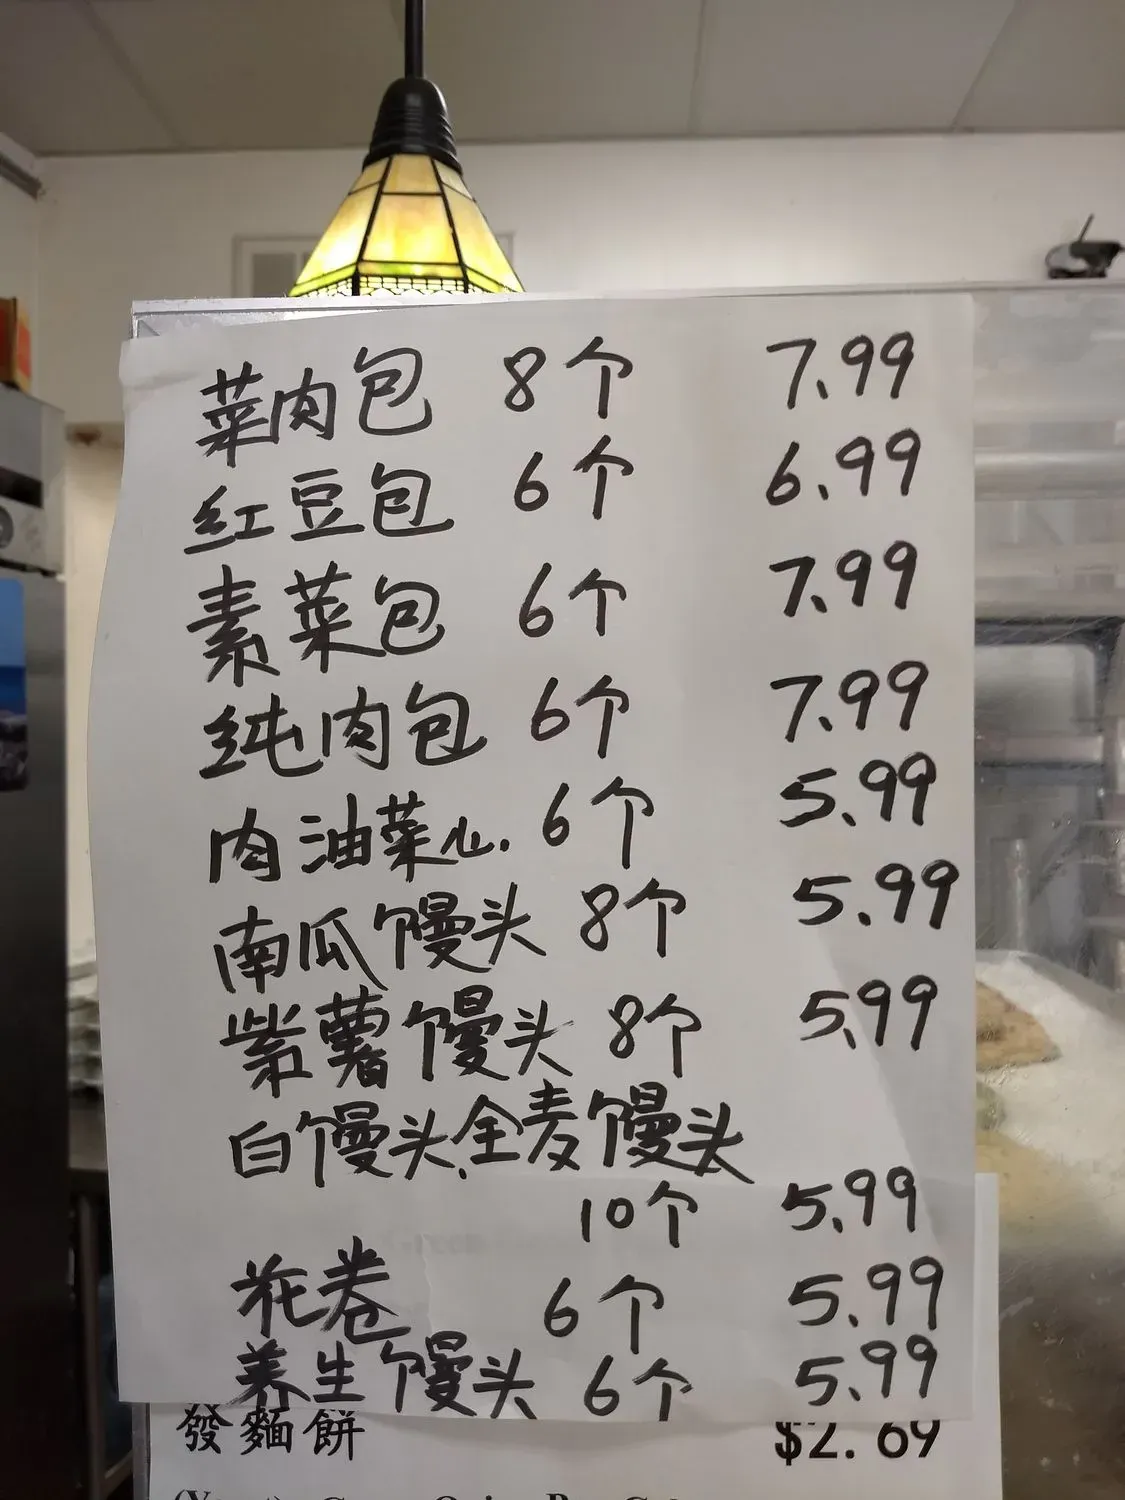 菜肉包 8个 7.99
红豆包 6个 6.99
素菜包 6个 7.99
纯肉包 6个 7.99
肉油菜心. 6个 5.99
南瓜馒头 8个 5.99
紫薯馒头 8个 5.99
白馒头.全麦馒头
10个 5.99
花卷 6个 5.99
养生馒头 6个 5.99
發麵餅 $2.69